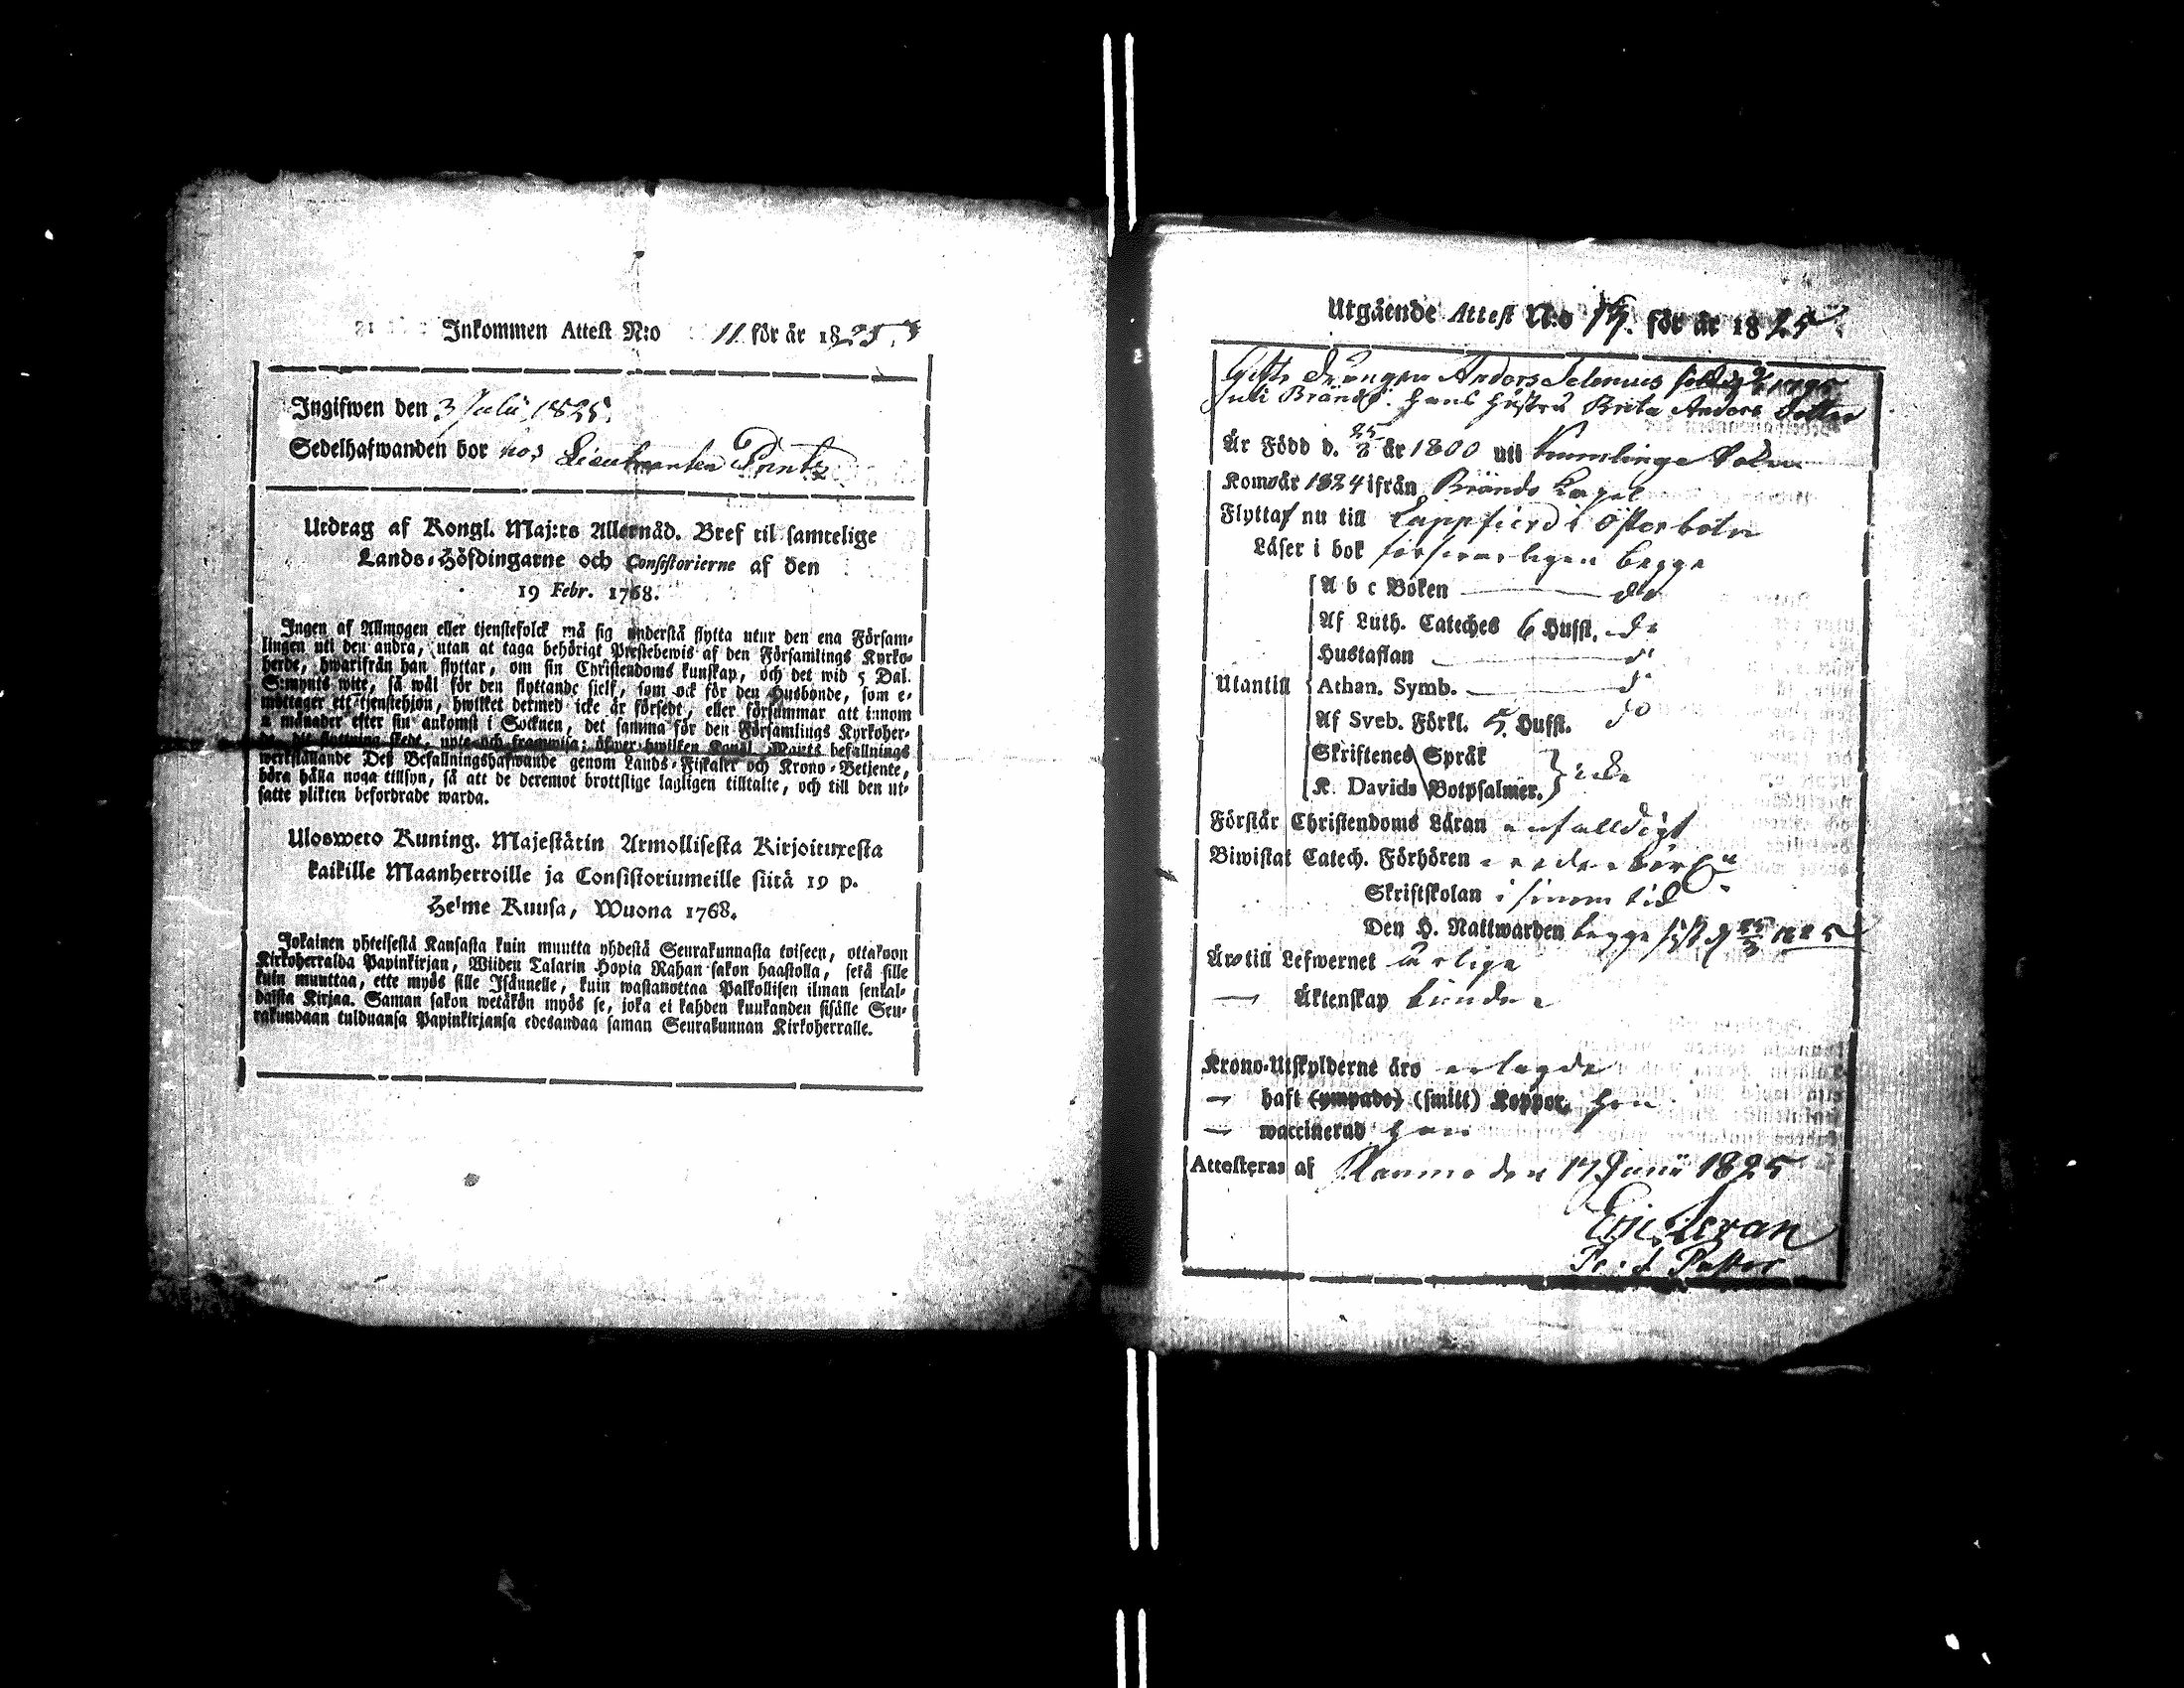 Inkommen Attest N:o 11 för år 1825.
Ingifwen den 3 Julii 1825.
Sedelhafwanden bor hos Lieutnanten Printz
Utdrag af Kongl. Maj:ts Allernåd. Bref til samtelige
Lands-Höfdingarne och Consistorierne af den
19 Febr. 1768.
Ingen af Allmogen eller tjenstefolck må sig understå flytta utur den ena Försam-
lingen uti den andra, utan at taga behörigt Prestebewis af den Församlings Kyrko-
herde, hwarifrån han flyttar, om sin Christendoms kunskap, och det wid 5 Dal.
S:mynts wite, så wäl för den flyttande sielf, som ock för den Husbonde, som e-
mottager ett tjenstehjon, hwilket dermed icke är försedt, eller försummar att innom
2 månader efter sin ankomst i Socknen, det samma för den Församlings Kyrkoher-
de, dit flyttning skedt, upte och framwisa; öfwer hwilken Kongl. Maj:ts befallnings
werkställande Deß Befallningshafwande genom Lands-Fiskaler och Krono-Betjente,
böra hålla noga tillsyn, så att de deremot brottslige lagligen tilltalte, och till den ut-
satte plikten befordrade warda.
Ulosweto Kuning. Majestätin Armollisesta Kirjoituxesta
kaikille Maanherroille ja Consistoriumeille siitä 19 p.
Helme Kuusa, Wuona 1768.
Jokainen yhteisestä Kansasta kuin muutta yhdestä Seurakunnasta toiseen, ottakoon
Kirkoherralda Papinkirjan, Wiiden Talarin Hopia Rahan sakon haastolla, sekä sille
kuin muuttaa, ette myös sille Isännelle, kuin wastanottaa Palkollisen ilman senkal-
daista Kirjaa. Saman sakon wetäkön myös se, joka ei kahden kuukanden sisälle Seu-
rakundaan tulduansa Papinkirjansa edesandaa saman Seurakunnan Kirkoherralle.
Utgående Attest N:o för år 1825
Gifte Drängen Anders Selenius född 1795
uti Brändö. Hans Hustru Brita Anders Dotter
Är Född d. 25/3 år 1800 uti Kumlinge Sokn
Kom år 1824 ifrån Brändö Kapel
Flytta nu till Lappfierd i Österbotn
Läser i bok försvarligen begge
A b c Boken do
Af Luth. Cateches 6 Hufst. do
Hustaflan do
Utantill Athan. Symb. do
Af Sveb. Förkl. 5 Hufst. do
Skriftenes Språk
K. Davids Botpsalmer. icke
Förstår Christendoms Läran enfalldigt
Biwistat Catech. Förhören
Skriftskolan i sinom tid
Den H. Nattwarden begge sist d 25/3 1825
Äro till Lefwernet ärlige
— Äktenskap bundne
Krono-Utskylderne äro erlagde
— haft (ympade) (smitt) Koppor, hon
— waccinerad han
Attesteras af Raumo den 17 Junii 1825
Eric Levan
Past.